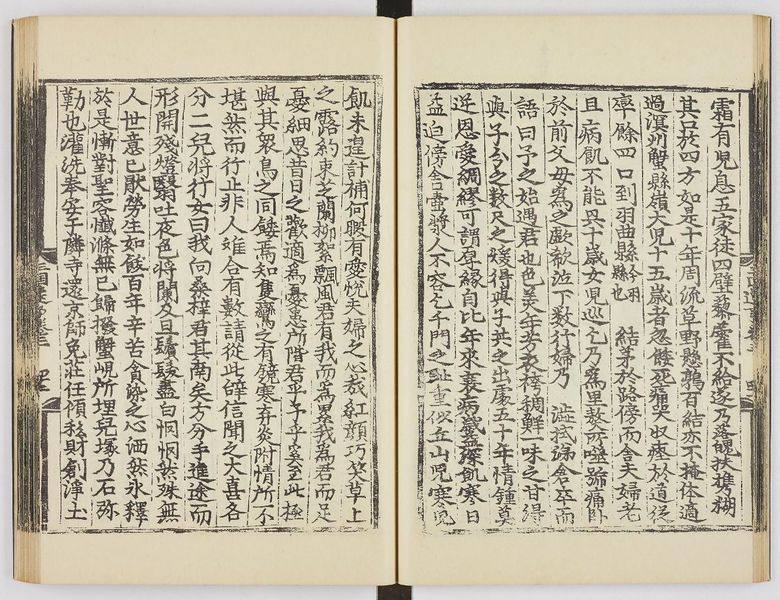 霜有児息五家徒四壁藜藿不給遂乃落魄扶携糊
其口於四方如是十年周流草野懸鶉百結亦不掩体適
過溟州蟹縣嶺大児十五歳者忽餧死痛哭収瘞於道従
率餘四口到羽曲縣今羽縣也結茅於路傍而舎夫婦老
且病飢不能興十歳女児巡乞乃為里獒所噬號痛臥
於前父母為之歔欷泣下數行婦乃澁拭涕倉卒而
語曰予之始遇君也色美年芳衣袴稠鮮一味之甘得
與子分之數尺之煖得與子共之出處五十年情鍾莫
逆恩愛綢繆可謂厚縁自比年来衰病歳益深飢寒日
益迫傍舎壺漿人不容乞千門之耻重似丘山児寒児
飢未遑計補何暇有愛悅夫婦之心哉紅顔巧笑草上
之露約束芝蘭柳絮飄風君有我而為累我為君而足
憂細思昔日之歡適為憂患所階君乎予乎奚至此極
與其衆鳥之同餧焉知隻鸞之有鏡寒弃炎附情所不
堪然而行止非人離合有數請從此辞信聞之大喜各
分二児將行女曰我向桑梓君其南矣方分手進途而
形開殘燈翳吐夜色將闌及旦鬢髮盡白惘惘然殊無
人世意已厭勞生如飫百年辛苦貪染之心洒然氷釋
於是慚對聖容懺滌無已歸撥蟹峴所埋児塚乃石弥
勒也灌洗奉安于隣寺還京師免莊任傾私財創淨土